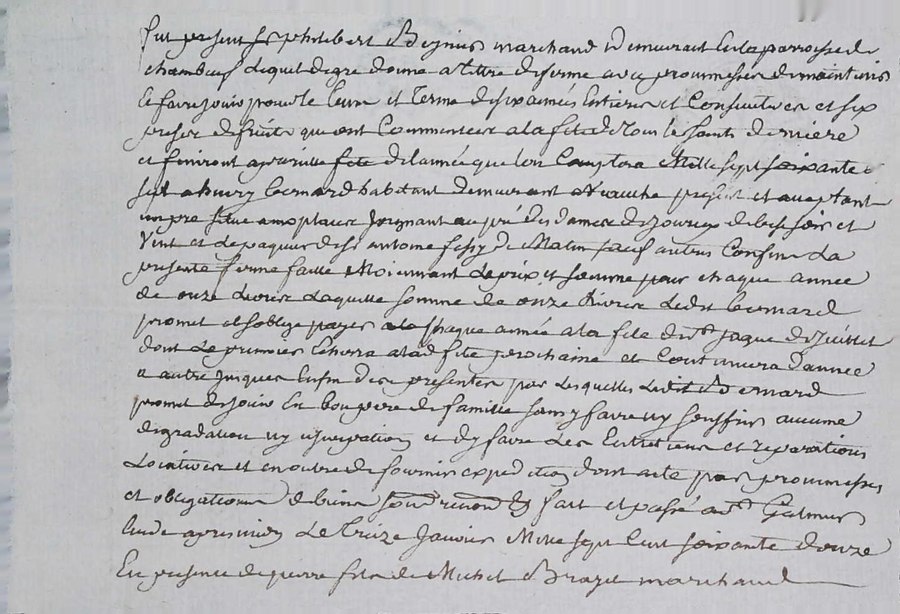 fut present Sr philibert Beynius marchand Demeurant En la parroisse de
chambeuf Lequel de gre donne a tittre de ferme avec promesses de maintenir
Et faire jouir pour le tems et Terme de six années Entieres et Consecutives et six
prises de fruits qui ont Commencees a la fete de tous les saints derniere
et finiront a pareille fete de l'année que l'on Comptera Mille sept soixante
sept a bernard habitant demeurant present et aceptant
un pre situe joignant au pré des dames de de bise soir et
Vent et de Sr antoine de Matin sauf autres Confins La
presente ferme faitte Moiennant Le prix et somme pour chaque année
de onze Livres Laquelle somme de onze Livres Ledit bernard
promet et soblige payer chaque année a la fete de st Jaque de Juillet
dont Le premier Echerra a lad fete prochaine et Continuera d'année
a autre jusques Enfin des presentes par Lesquelles Ledit Bernard
promet de jouir En bon pere de famille sans y faire ny souffrir aucune
degradation ny usurpation et d'y faire Les Entretiens et reparations
Locatives et en outre de fournir expedition dont acte par promesses
et obligations de biens fait et passé a st Galmier
Etude apres midy Le Treize Janvier Mille sept Cent soixante douze
En presence de pierre fils de Michel marchand